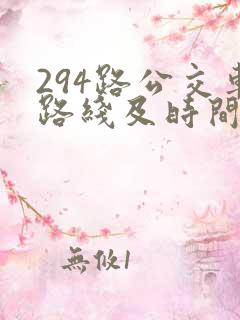 294路公交車
路綫及時間
無攸1